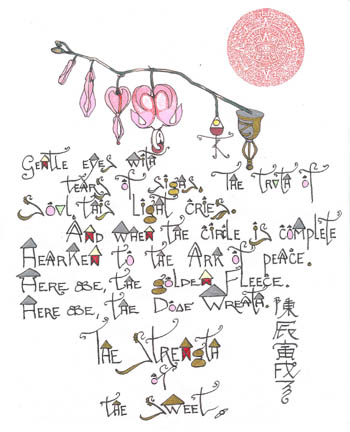 Gentle eyes with
tears of sighs, The truth of
Soul, this Light cries.
And when the circle is complete
Hearken to the Ark of peace.
Here the golden Fleece.
Here the Dove Wreath.
The Strength
of
the Sweet.
陳辰寅戌